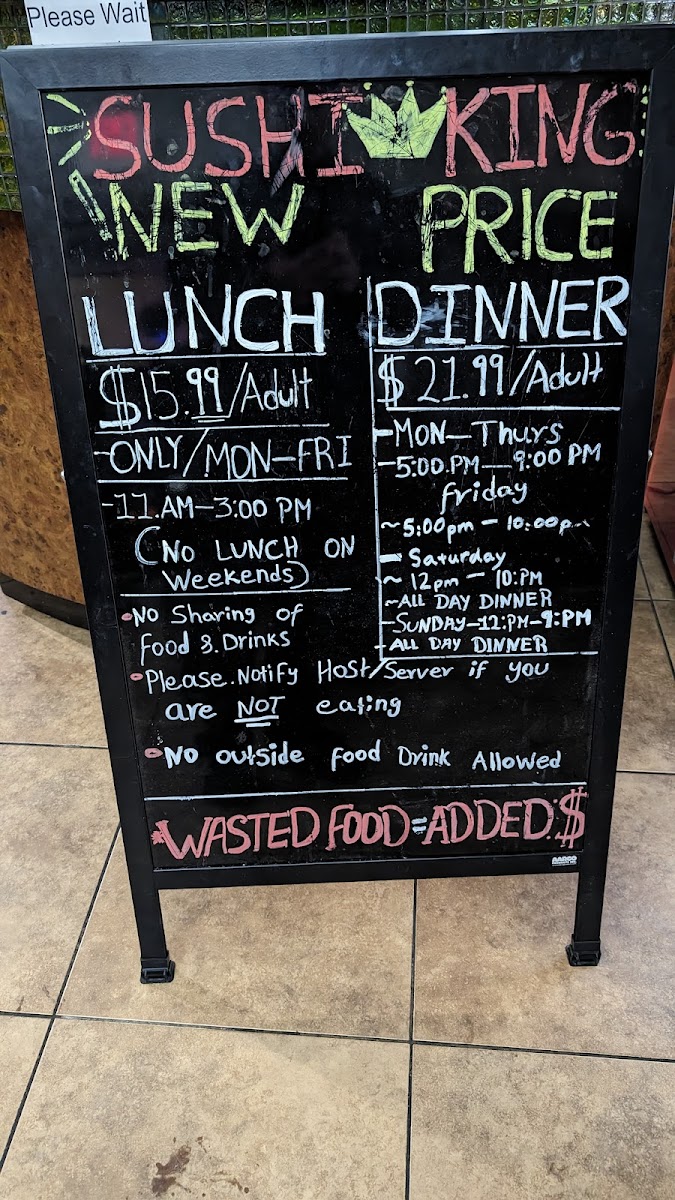 Please Wait
SUSHI KING
NEW PRICE
LUNCH
$15.99/Adult
-ONLY/MON-FRI
-11.AM-3:00 PM
(NO LUNCH ON
Weekends)
DINNER
$21.99/Adult
-MON-Thurs
-5:00.PM-9:00 PM
friday
~5:00pm-10:00pm
- Saturday
~ 12pm-10:PM
~ALL DAY DINNER
-SUNDAY-12:PM-9:PM
-ALL DAY DINNER
•NO Sharing of
food & Drinks
•Please.Notify Host/Server if you
are NOT eating
•No outside food Drink Allowed
*WASTED FOOD=ADDED:$